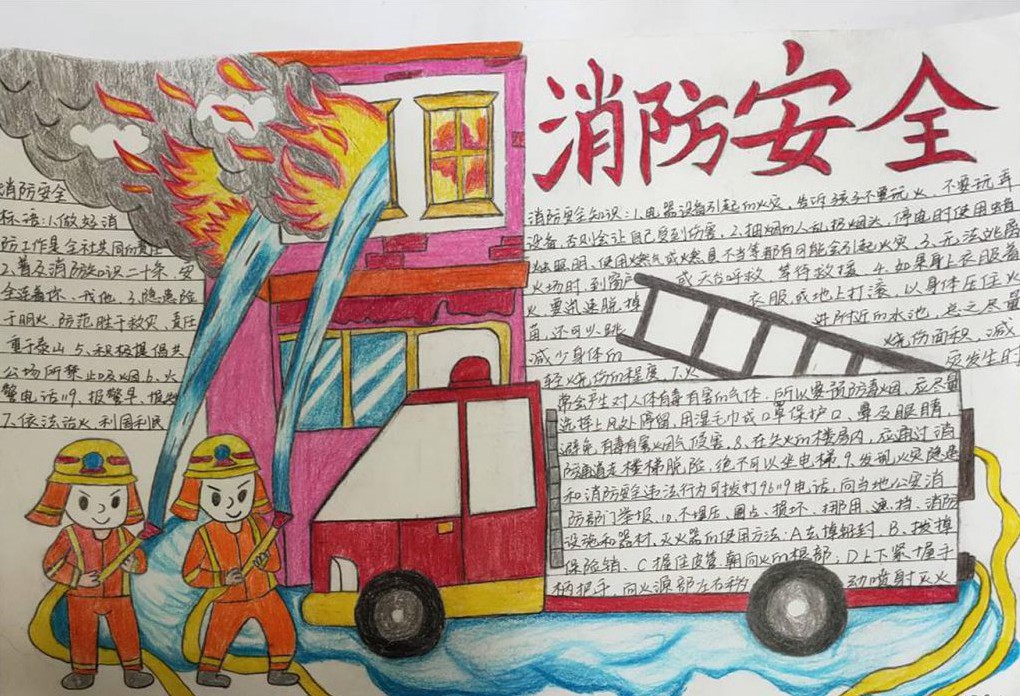 消防安全
消防安全
标语:1.做好消
防工作是全社共同的责任
2.普及消防知识二十条,安
全连着你、我他。3.隐患险
于明火,防范胜于救灾、责任
重于泰山 5、积极提倡共
公场所禁止吸烟 6、火
警电话119、报警早、损失
7.依法治火、利国利民
消防安全知识:1.电器设备引起的火灾,告诉孩子不要玩火、不要玩弄
设备,否则会让自己受到伤害。2.抽烟的人乱扔烟头,停电时使用蜡
烛照明,使用燃气或燃具不当等都有可能会引起火灾。3、无法逃离
火场时,到窗户 或天台呼救 等待救援 4.如果身上衣服着
火 要迅速脱掉 衣服,或地上打滚,以身体压住火
苗,还可以跳 进附近的水池,总之尽量
减少身体的 烧伤面积,减
轻烧伤的程度。7.火 灾发生时
常会产生对人体有毒有害的气体,所以要预防毒烟,应尽量
选择上风处停留,用湿毛巾或口罩保护口、鼻及眼睛,
避免有毒有害烟气侵害。8.在失火的楼房内,应通过消
防通道走楼梯脱险,绝不可以坐电梯。9.发现火灾隐患
和消防安全违法行为可拨打96119电话,向当地公安消
防部门举报。10.不埋压、圈占、损坏、挪用、遮挡、消防
设施和器材。灭火器的使用方法:A去掉铅封、B、拔掉
保险销、C握住皮管,朝向火的根部,D上下紧握手
柄把手、向火源部左右移 动喷射灭火